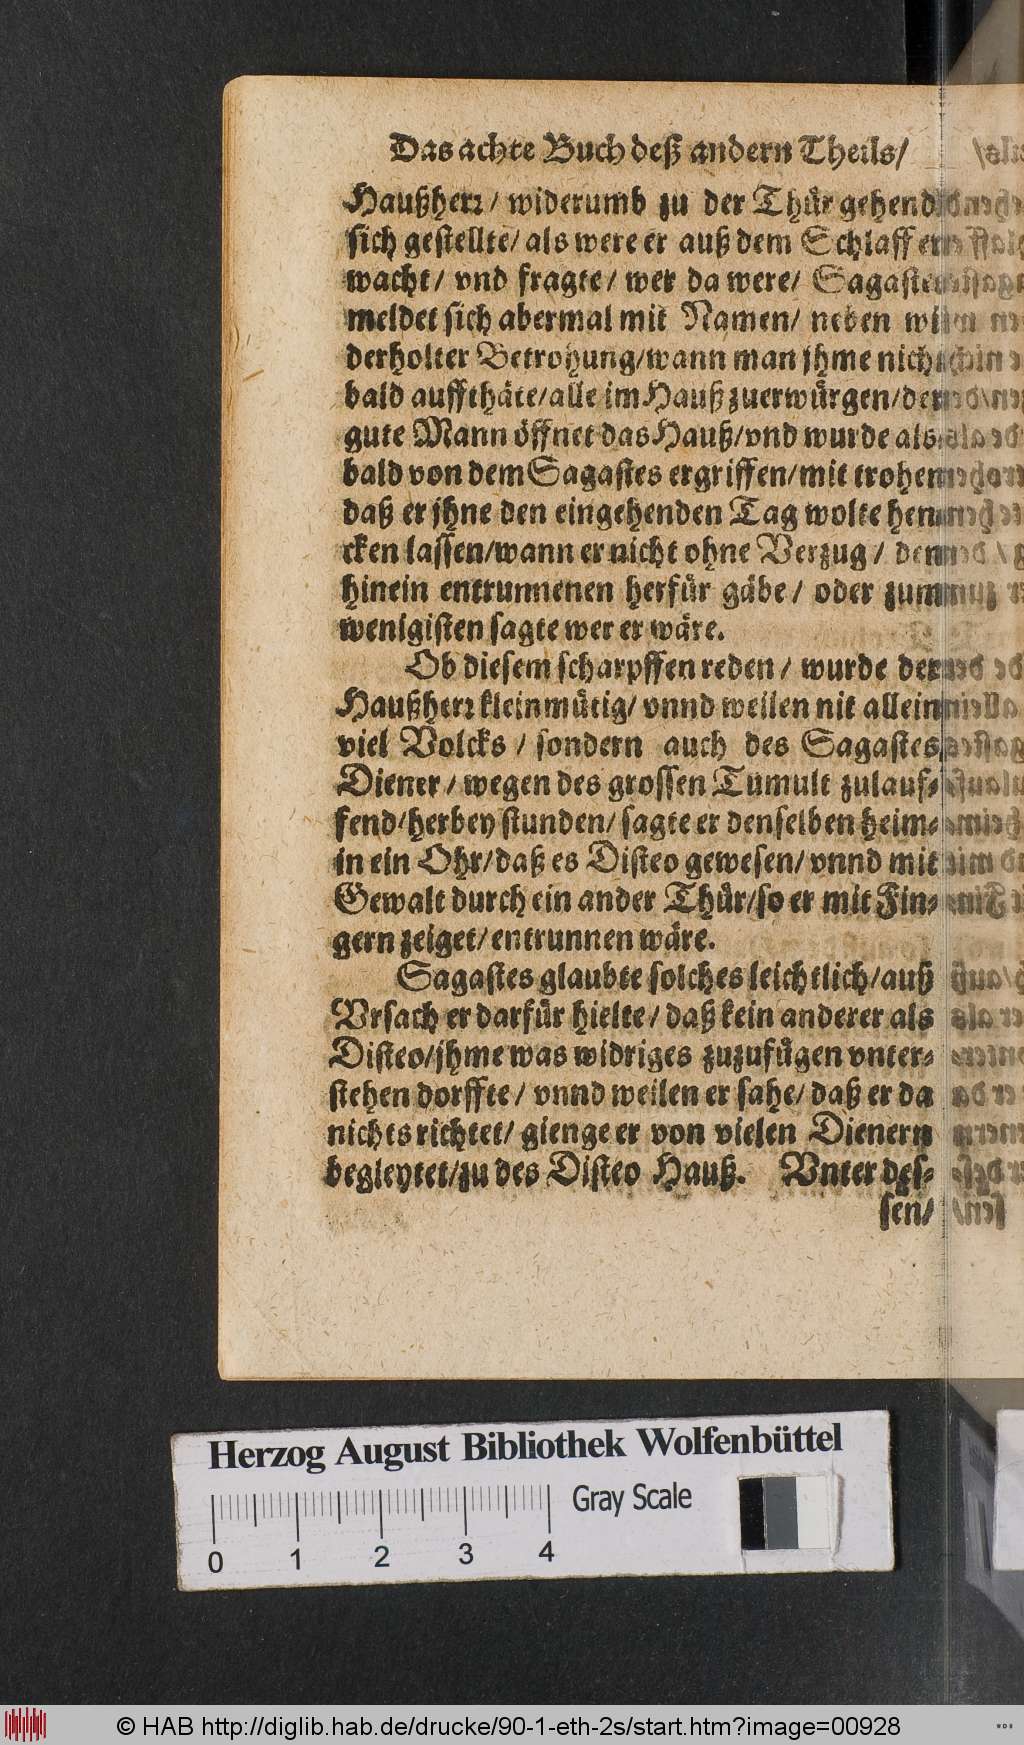 Das achte Buch deß andern Theils/
Haußherr / widerumb zu der Thür gehend
sich gestellte/ als were er auß dem Schlaff er-
wacht/ vnd fragte/ wer da were/ Sagastes
meldet sich abermal mit Namen/ neben wi-
derholter Betrohung/wann man jhme nicht
bald auffthäte/alle im Hauß zuerwürgen/der
gute Mann öffnet das Hauß/vnd wurde als-
bald von dem Sagastes ergriffen/mit trohen
daß er jhne den eingehenden Tag wolte hen-
cken lassen/wann er nicht ohne Verzug / den
hinein entrunnenen herfür gäbe/ oder zum
wenigisten sagte wer er wäre.
Ob diesem scharpffen reden / wurde der
Haußherr kleinmütig/ vnnd weilen nit allein
viel Volcks / sondern auch des Sagastes
Diener / wegen des grossen Tumult zulauf-
fend/herbey stunden/ sagte er denselben heim-
in ein Ohr/daß es Disteo gewesen/ vnnd mit
Gewalt durch ein ander Thür/so er mit Fin-
gern zeiget/ entrunnen wäre.
Sagastes glaubte solches leichtlich/auß
Vrsach er darfür hielte/ daß kein anderer als
Disteo/jhme was widriges zuzufügen vnter-
stehen dorffte/ vnnd weilen er sahe/ daß er da
nichts richtet/ gienge er von vielen Dienern
begleytet/zu des Disteo Hauß. Vnter des-
sen/
Herzog August Bibliothek Wolfenbüttel
Gray Scale
0 1 2 3 4
© HAB http://diglib.hab.de/drucke/90-1-eth-2s/start.htm?image=00928